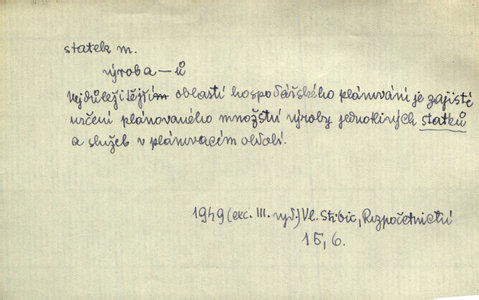 statek m.
výroba – ů
Nejdůležitějším oblastí hospodářského plánování je zajisté
určení plánovaného množství výroby jednotlivých statků
a služeb v plánovacím období.
1949 (exc. III. vyd.) Vl. Skbic, Rozpočetnictví
15, 6.